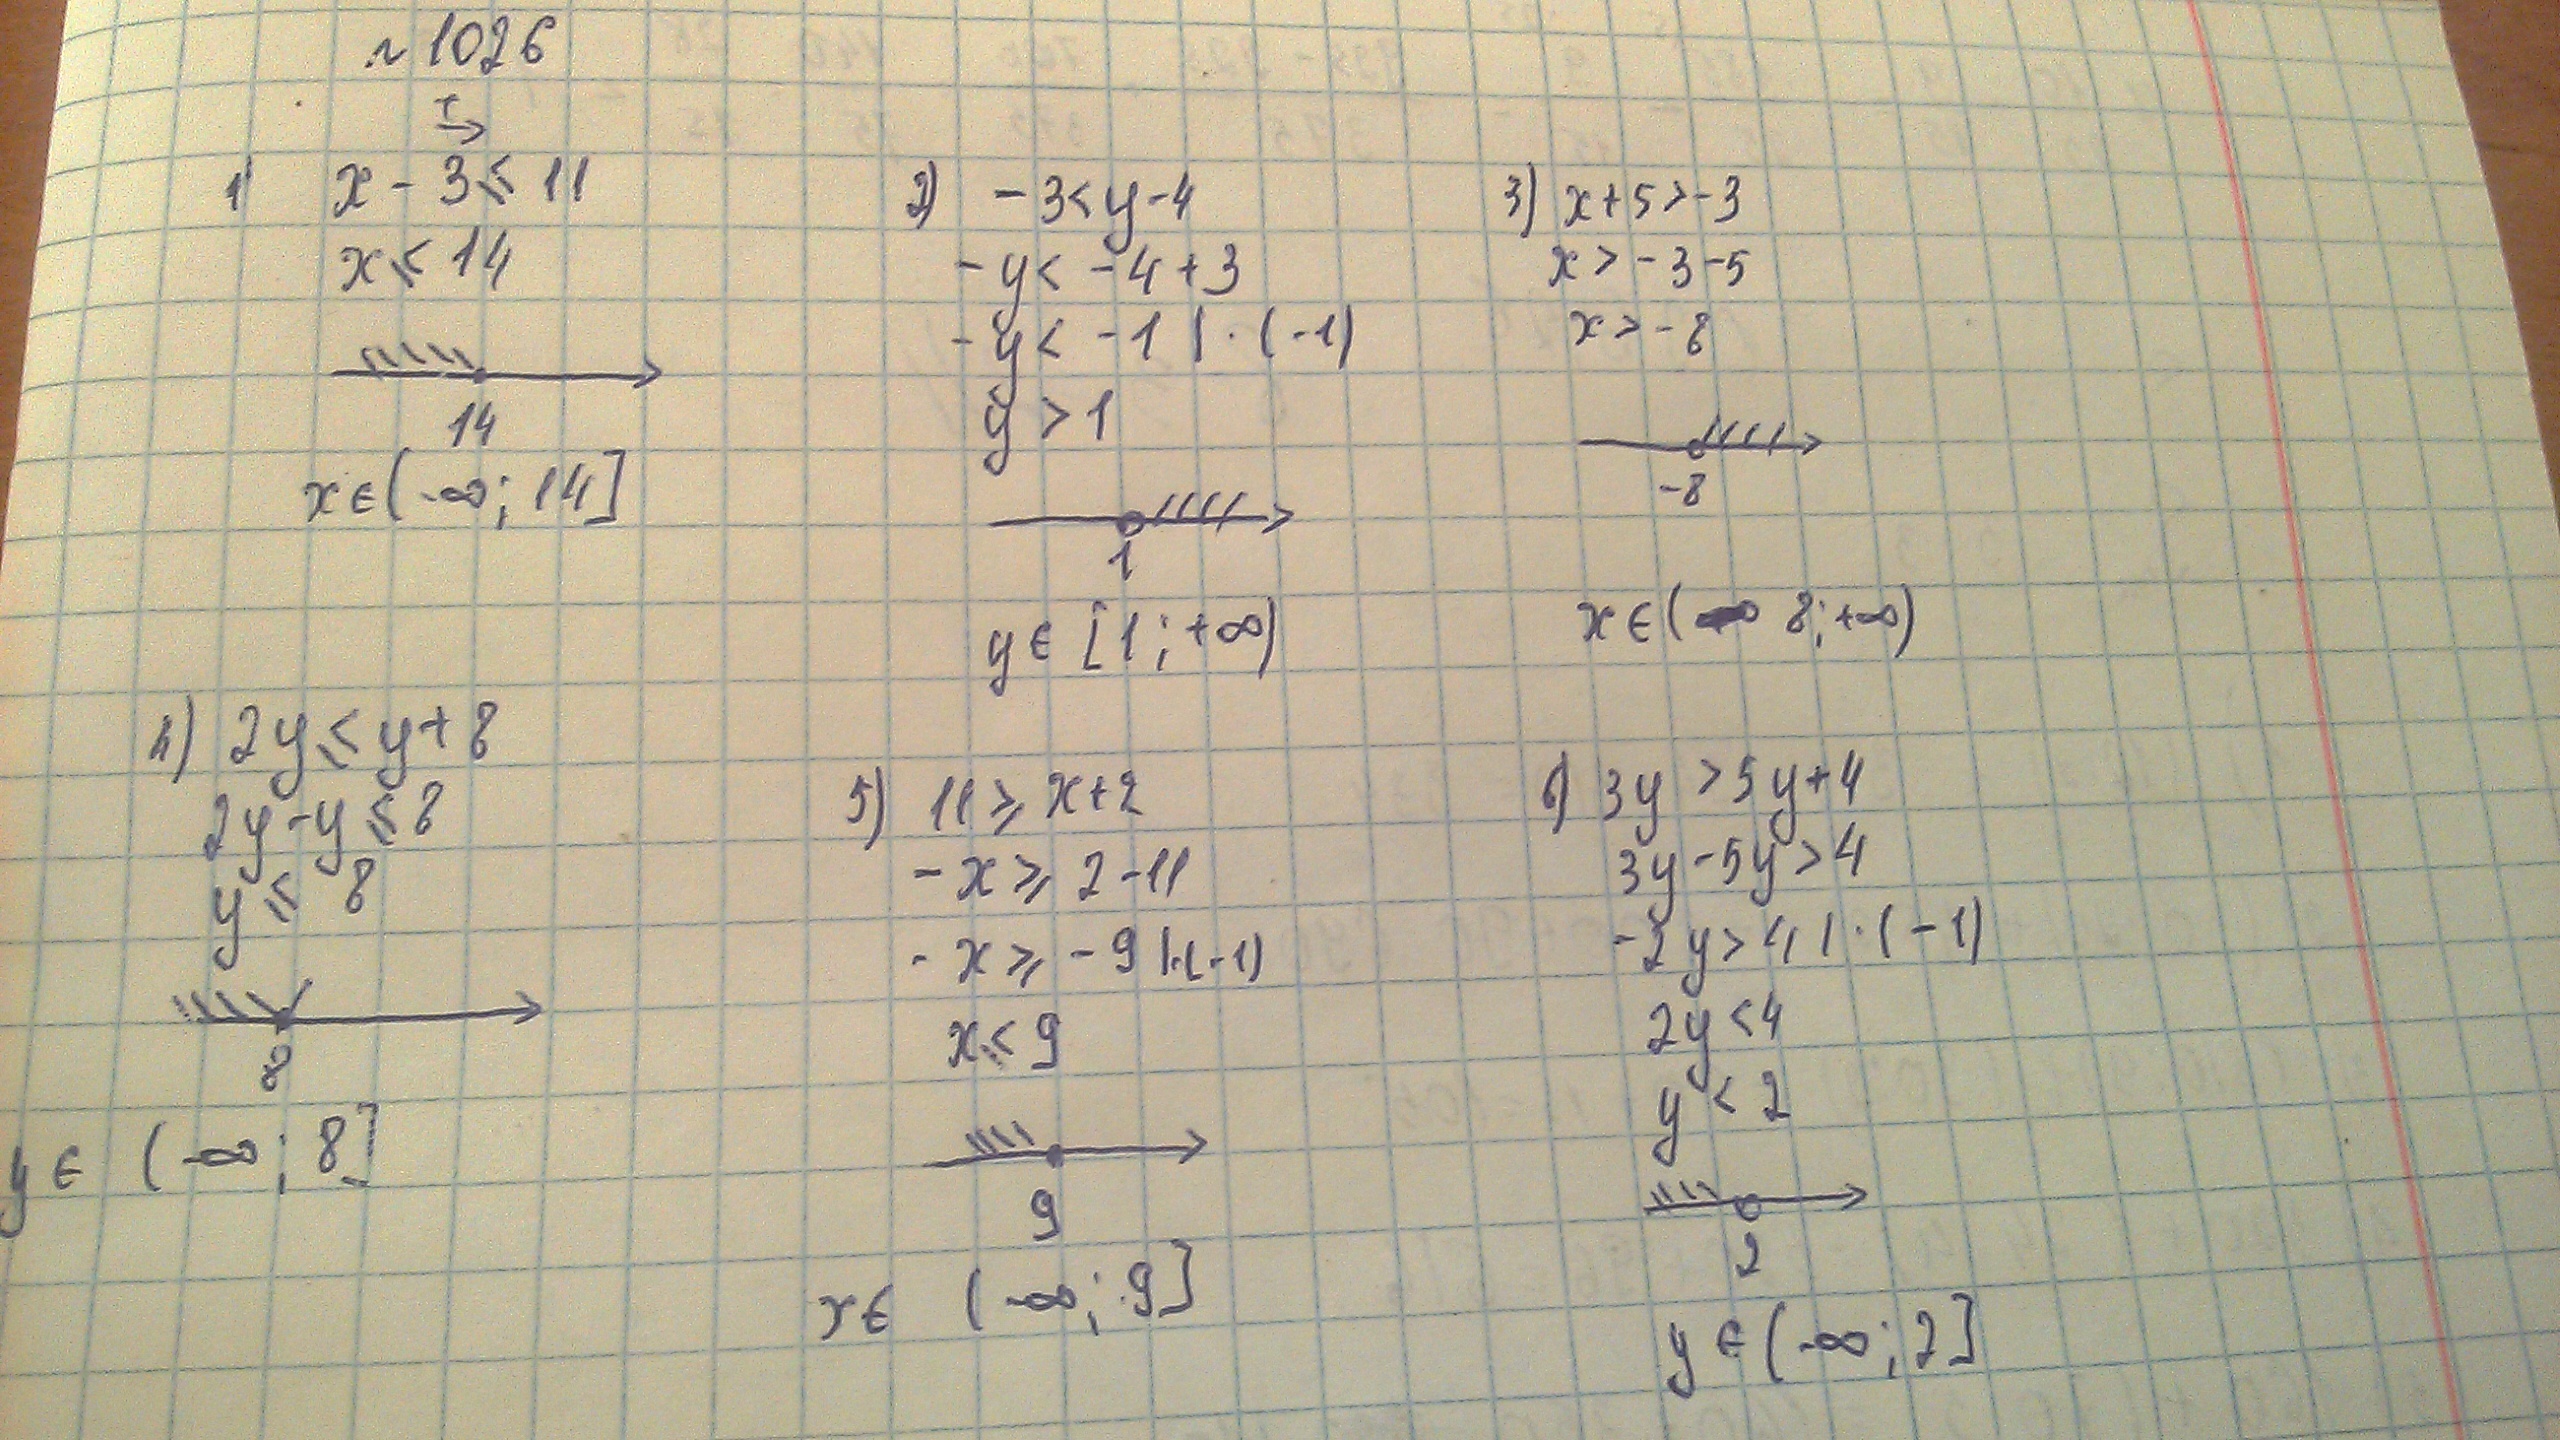 №1026
+
→
1) x - 3 ⩽ 11
x ⩽ 14
14
x ∈ (-∞; 14]
2) -3 < y - 4
-y < -4 + 3
-y < -1 | · (-1)
y > 1
1
y ∈ [1; +∞)
3) x + 5 > -3
x > -3 - 5
x > -8
-8
x ∈ ( 8; +∞)
4) 2y ⩽ y + 8
2y - y ⩽ 8
y ⩽ 8
8
y ∈ (-∞; 8]
5) 11 ⩾ x + 2
-x ⩾ 2 - 11
-x ⩾ -9 | · (-1)
x ⩽ 9
9
x ∈ (-∞; 9]
6) 3y > 5y + 4
3y - 5y > 4
-2y > 4 | · (-1)
2y < 4
y < 2
2
y ∈ (-∞; 2]